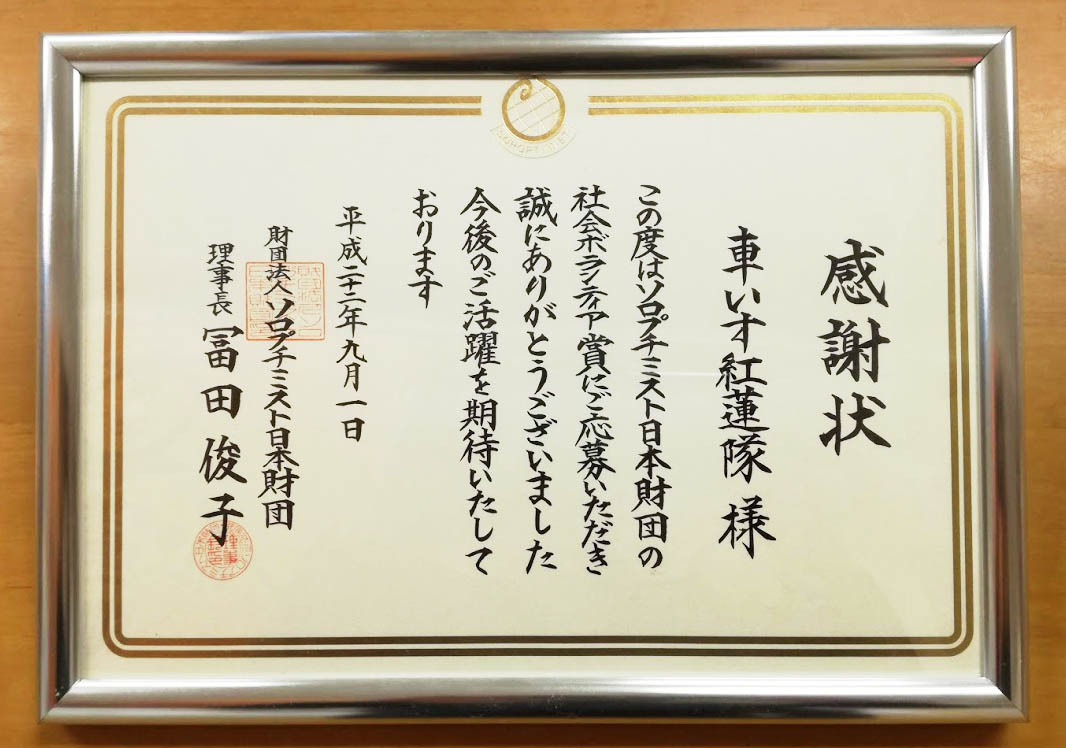 感謝状
車いす紅蓮隊 様
この度はソロプチミスト日本財団の
社会ボランティア賞にご応募いただき
誠にありがとうございました
今後のご活躍を期待いたして
おります
平成二十二年九月一日
財団法人 ソロプチミスト日本財団
理事長 冨田俊子
SOROPTIMIST